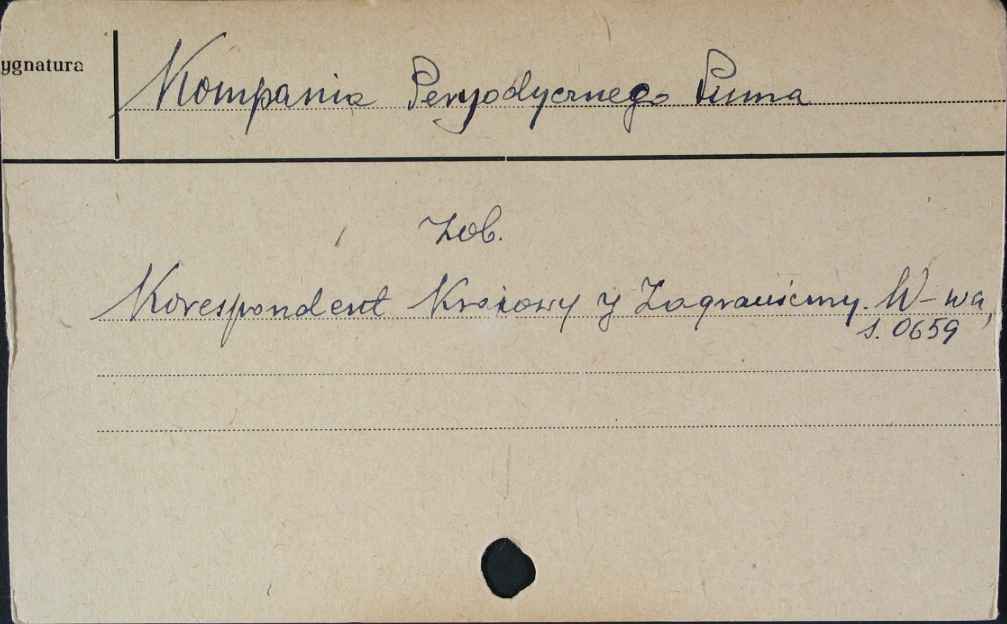 ygnatura
Kompania Peryodycznego Pisma
Zob.
Korespondent Krajowy y Zagraniczny. W-wa,
s. 0659